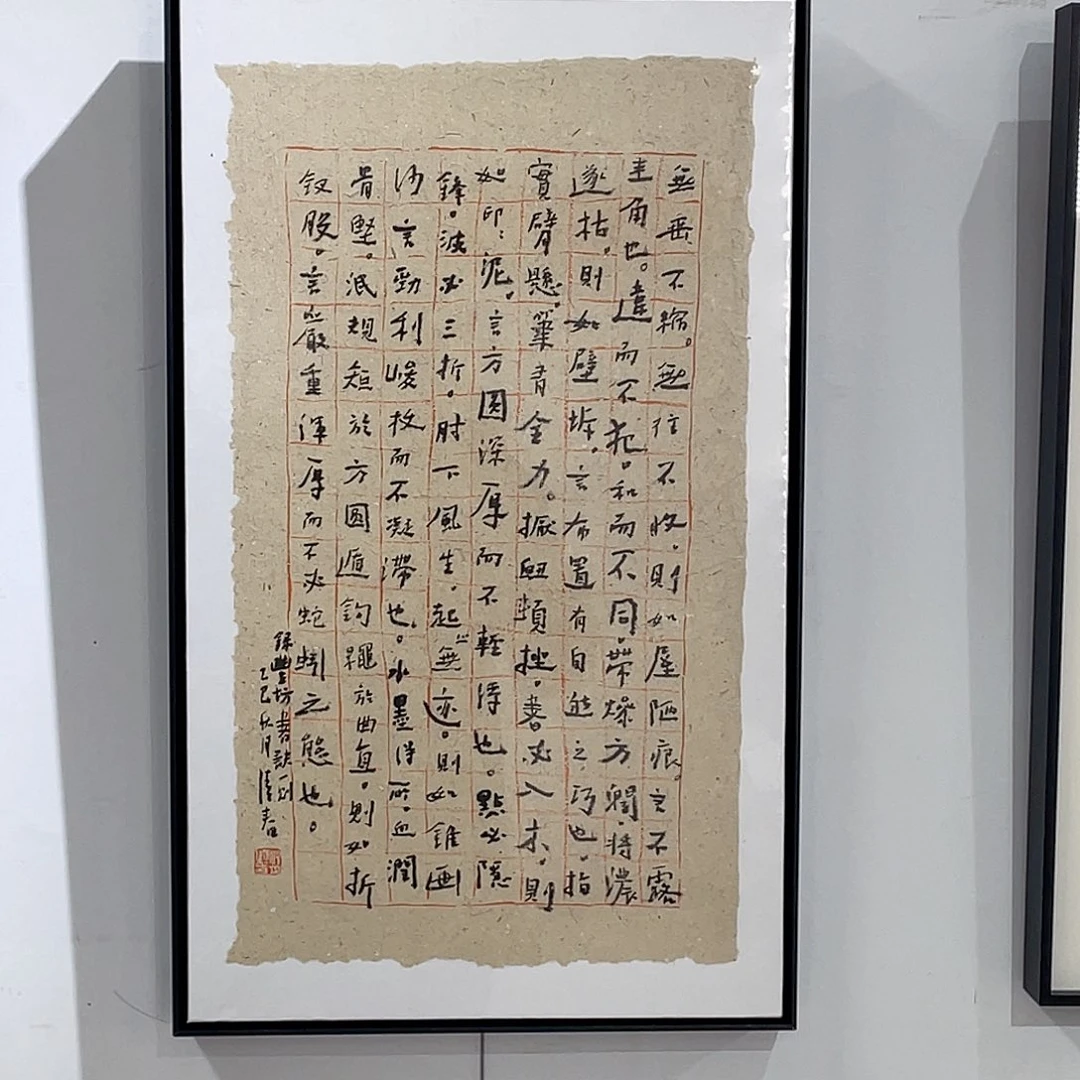 無垂不縮。無往不收。則如屋陋痕。言不露
圭角也。違而不犯。和而不同。帶燥方潤。將濃
遂枯。則如壁坼。言布置有自然之巧也。指
實臂懸。筆有全力。擫衄頓挫。書必入木。則
如印〻泥。言方圓深厚而不輕浮也。點必隱
鋒。波必三折。肘下風生。起止無迹。則如錐画
沙言勁利峻拔而不凝滯也。水墨得所。血潤
骨堅。泯規矩於方圓遁鈎繩於曲直。則如折
釵股。言嚴重渾厚而不必蛇蚓之態也。
録豐坊書訣一則
乙巳秋月